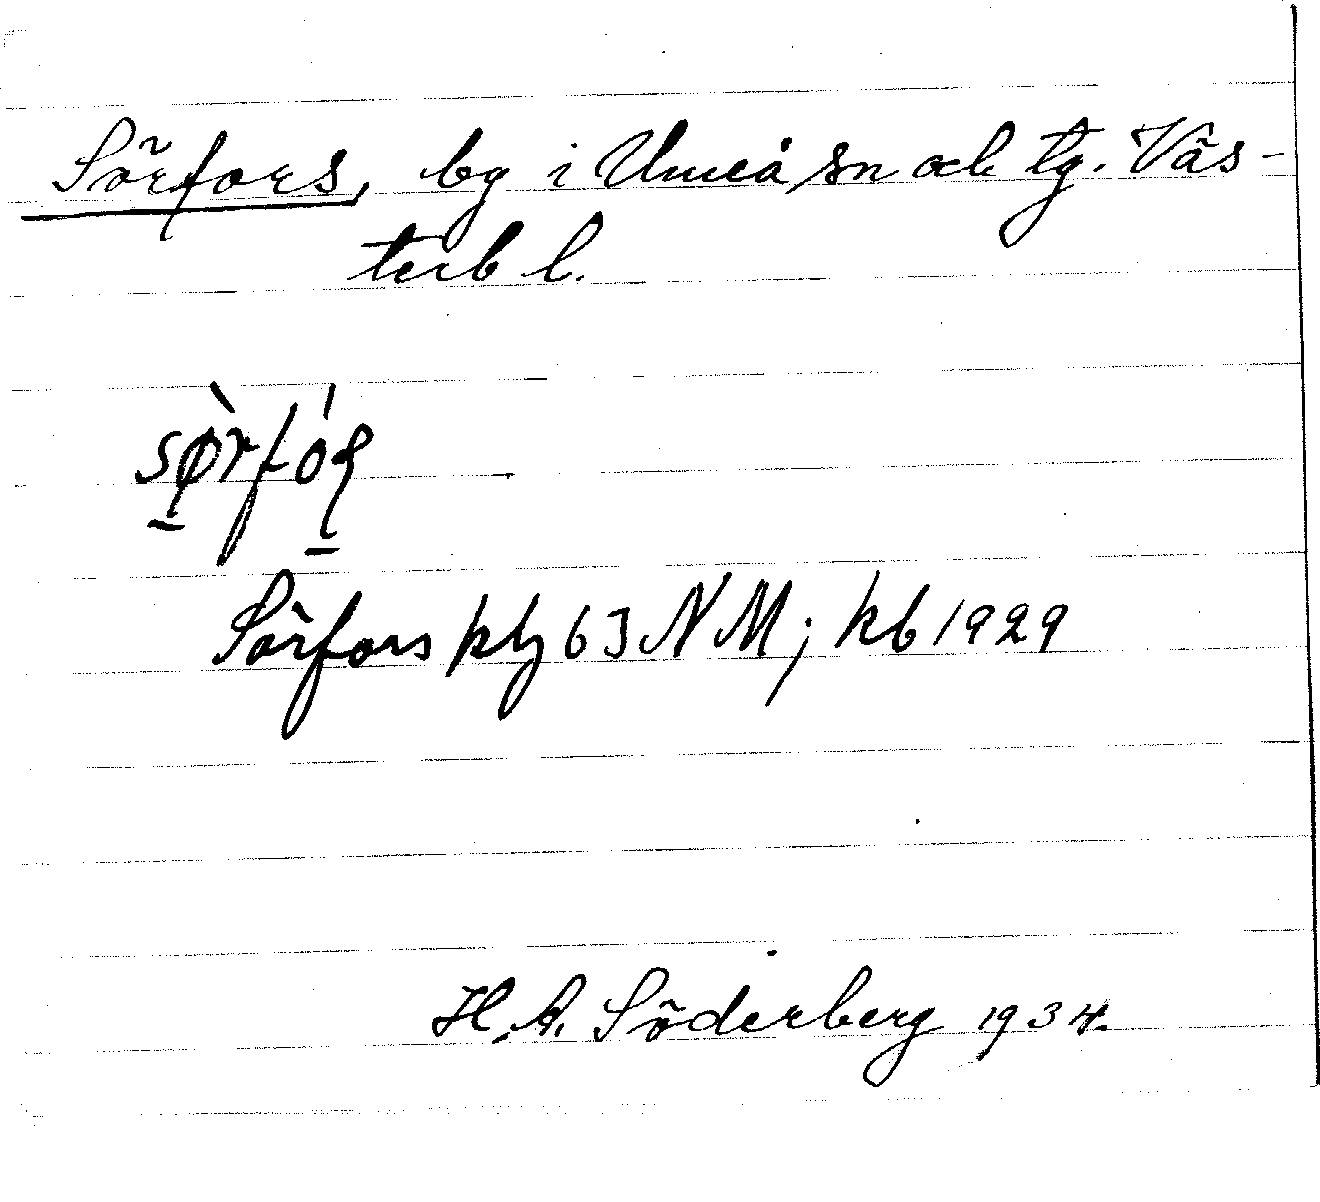 Sörfors, by i Umeå sn och tg. Väs-
terb l.
Sörfors ktz 63 NM; kb 1929
H. A. Söderberg 1934.